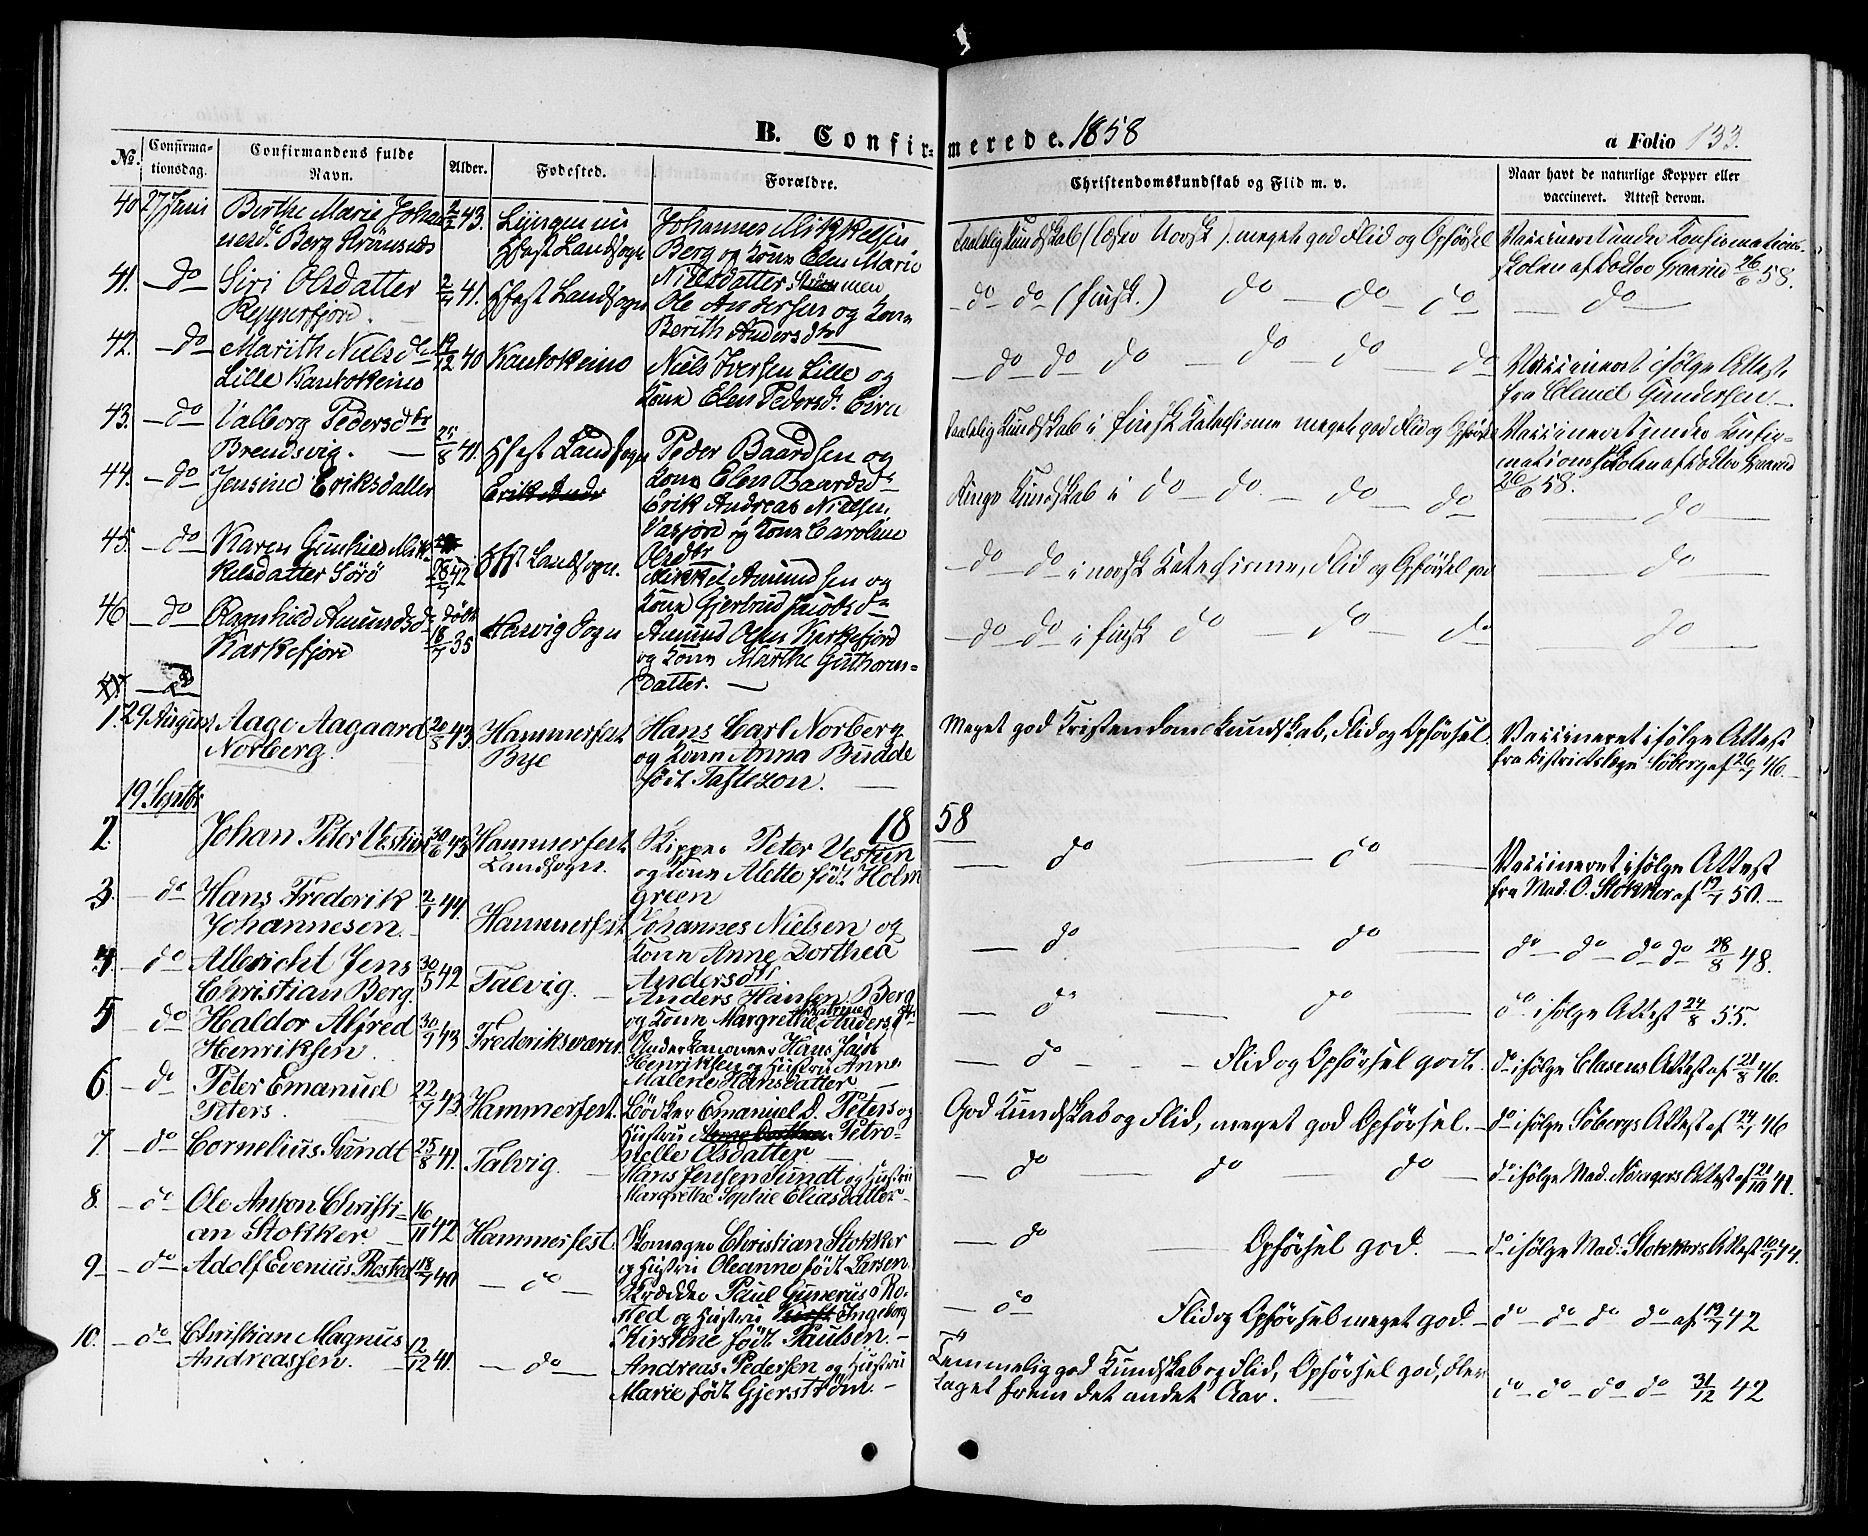 B. Confirmerede. 1858
a Folio 133.
No.
Confirmationsdag.
Confirmandens fulde Navn.
Alder.
Fødested.
Forældre.
Christendomskundskab og Flid m. v.
Naar havt de naturlige Kopper eller vaccineret. Attest derom.
40 27 Juni Berthe Marie Johan 2/2 43. Lyngen nu Johannes Mikkelsen
nesdr Berg Hfest Landsogn Berg og Kone Elen Marie
Nielsdatter Strømmen
Kundskab (læser Norsk). meget god Flid og Opførsel Vaccineret under Konfirmations-
skolen af Doktor Graarud 26/6 58.
41. do Siri Olsdatter 2/7 41. Hfest Landsogn Ole Andersen og Kone
Repperfjord. Berith Andersdtr
do do (finsk.) do do do do
42. do Marith Nielsdr 19/12 40 Kautokeino Niels Iversen Lille og
Lille Kautokeino Kone Elen Pedersdr Eira
do do do do do do Vaccineret ifølge Attest
fra Clemet Gundersen.
43. do Valborg Pedersdtr 25/8 41. Hfest Landsogn Peder Baardsen og
Brendsvig. Kone Elen Baardsdr
Kundskab i finsk Katechisme meget god Flid og Opførsel Vaccineret under Konfir-
mationsskolen af Doktor Graarud
26/6 58.
44. do Jensine Eriksdatter Erik Andr Erik Andreas Nielsen
og Kone Caroline
Olsdtr
Ringe Kundskab i do do do do do
45. do Karen Mik- 28/7 42 Hfst Landsogn. Mikkel Amundsen og
kelsdatter Sørø Kone Gjertrud Jacobsdr
do do i norsk Katechisme, Flid og Opførsel god do
46 do Ragnhild Amundsdr døbt 18/7 35 Hasvig Sogn Amund Olsen Karkefjord
Karkefjord og Kone Marthe Guthorms-
datter.
do do i finsk do do do do
1. 29 August Aage Aagaard 20/5 43. Hammerfest Hans Carl Norberg
Norberg. Bye og Kone Anna Budde
født Taftezon.
Meget god Kristendomskundskab, Flid og Opførsel. Vaccineret ifølge Attest
fra Districtslæge Søberg af 26/7 46.
19 Septbr
1858
2. Johan Peter Vestün 30/6 43 Hammerfest Skipper Peter Vestün
Landsogn. og Kone Alette født Holm
green
do do Vaccineret ifølge Attest
fra Mad. O. Stokker af 19/7 50.
3. do Hans Frederik 2/1 44. Hammerfest Johannes Nielsen og
Johannesen. Kone Anne Dorthea
Andersdtr
do do do do do do 28/8 48.
4. do Albricht Jens 30/5 42 Talvig. Anders Hansen Berg
Christian Berg. og Kone Margrethe Andersdtr
do do do ifølge Attest 24/8 55.
5 do Haldor Alfred 30/7 43 Frederiksværn. Underkanoneer Hans Jacob
Henriksen. Henriksen og Hustru Anne
Malene Hansdatter
do Flid og Opførsel godt. do ifølge Clasens Attest af 21/8 46.
6. do Peter Emanuel 22/7 43. Hammerfest. Bødker Emanuel D. Peters og
Peters. Hustru Petro-
nelle Olsdatter
God Kundskab og Flid, meget god Opførsel. do ifølge Søbergs Attest af 24/7 46
7. do Cornelius Sundt 25/8 41. Talvig. Hans Jensen Sundt og Hustru
Margrethe Sophie Eliasdatter
do do do do ifølge Mad. Attest af 21/10 41.
8. do Ole Anton Christi- 16/11 42 Hammerfest. Skomager Christian Stokker
an Stokker og Hustru Oleanne født Larsen
do Opførsel god. do ifølge Mad. Stokkers Attest 10/7 44.
9. do Adolf Evenius Rosted 18/7 40 do Skrædder Paul Gunerus Ro-
sted og Hustru Ingeborg
Kirstine født Paulsen.
do Flid og Opførsel meget god. do do do do af 19/7 42
10. do Christian Magnus 12/12 41. do Andreas Pedersen og Hustru
Andreassen. Marie født Gjerstrøm.
Temmelig god Kundskab og Flid, Opførsel god, blev
taget frem det andet Aar. do do do do 31/12 42